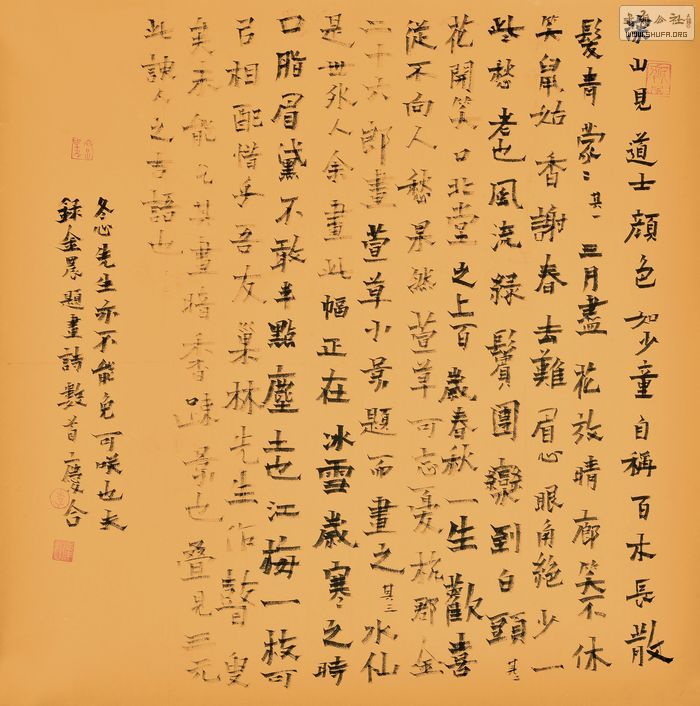 山見道士顔色如少童自稱百木長散
髮青蒙〻其一三月盡花放晴廊笑不休
笑鼠姑香謝春去難眉心眼角絶少一
些愁老也風流緑鬢團欒到白頭其二
花開笑口北堂之上百歲春秋一生歡喜
從不向人愁果然萱草可忘憂杭郡金
二十六郎畫萱草小景題而畫之其三水仙
是世外人余畫此幅正在冰雪歲寒之時
口脂眉黛不敢半點塵土也江梅一枝可
㠯相配惜乎吾友巢林先生作瞽叟
矣不能見其畫暗香疎影也叠見
此諫人之言語也
冬心先生亦不能免可咲也夫
録金農題畫詩數首慶合
WWW.SHUFA.ORG